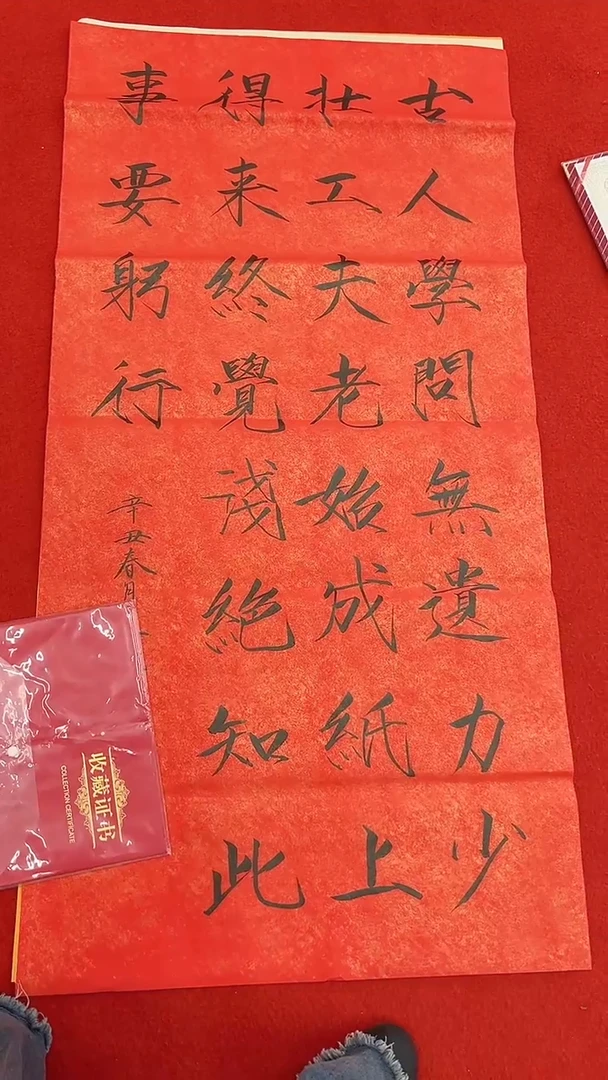 古人學問無遺力少
壮工夫老始成紙上
得来終覺淺絶知此
事要躬行
辛丑春月
收藏证书
COLLECTION CERTIFICATE